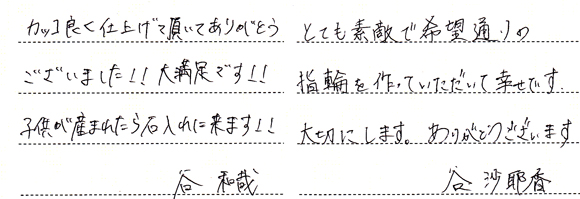 カッコ良く仕上げて頂いてありがとう
ございました!!大満足です!!
子供が産まれたら石入れに来ます!!
谷 和哉
とても素敵で希望通りの
指輪を作っていただいて幸せです。
大切にします。ありがとうございます
谷 沙耶香